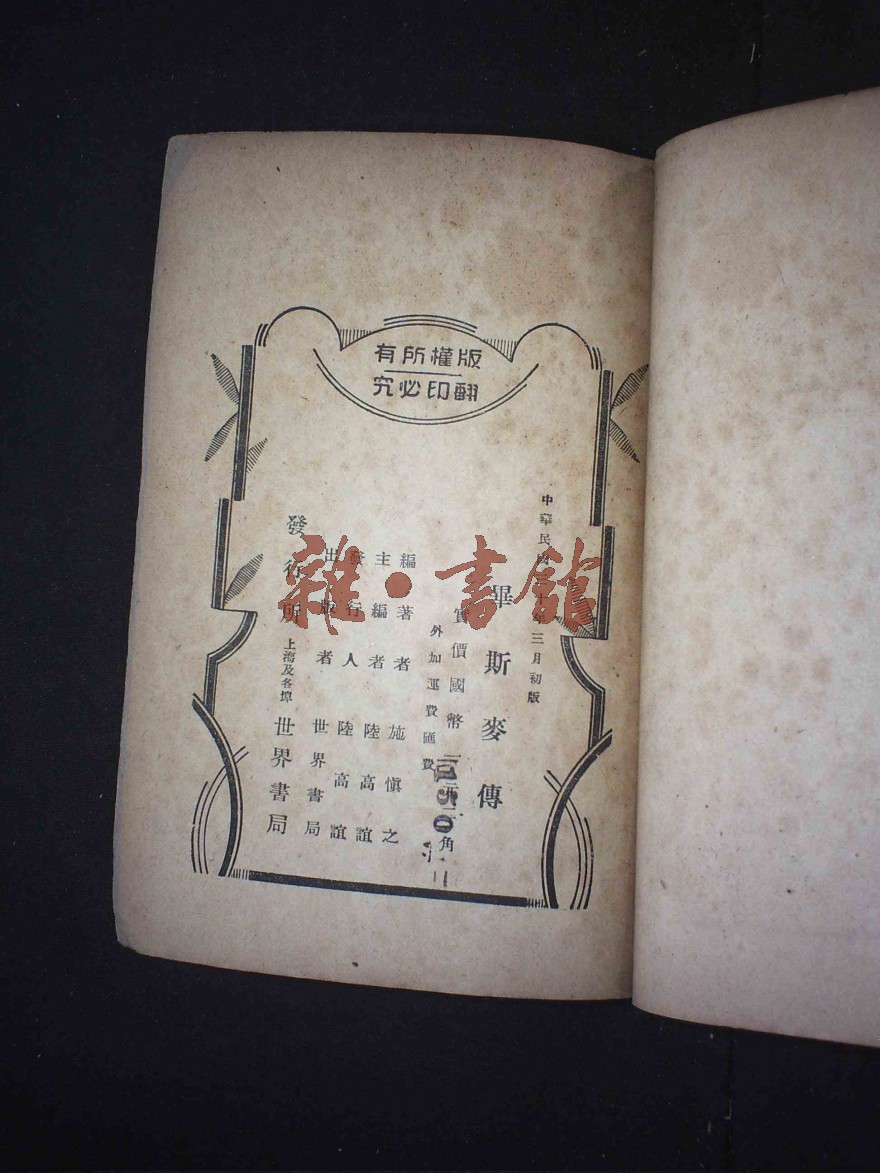 版權所有
翻印必究
中華民國三十年三月初版
畢斯麥傳
實價國幣 角
外加運費匯費
編著者 施愼之
主編者 陸高誼
發行人 陸高誼
出版者 世界書局
發行所 上海及各埠 世界書局
雜·書館